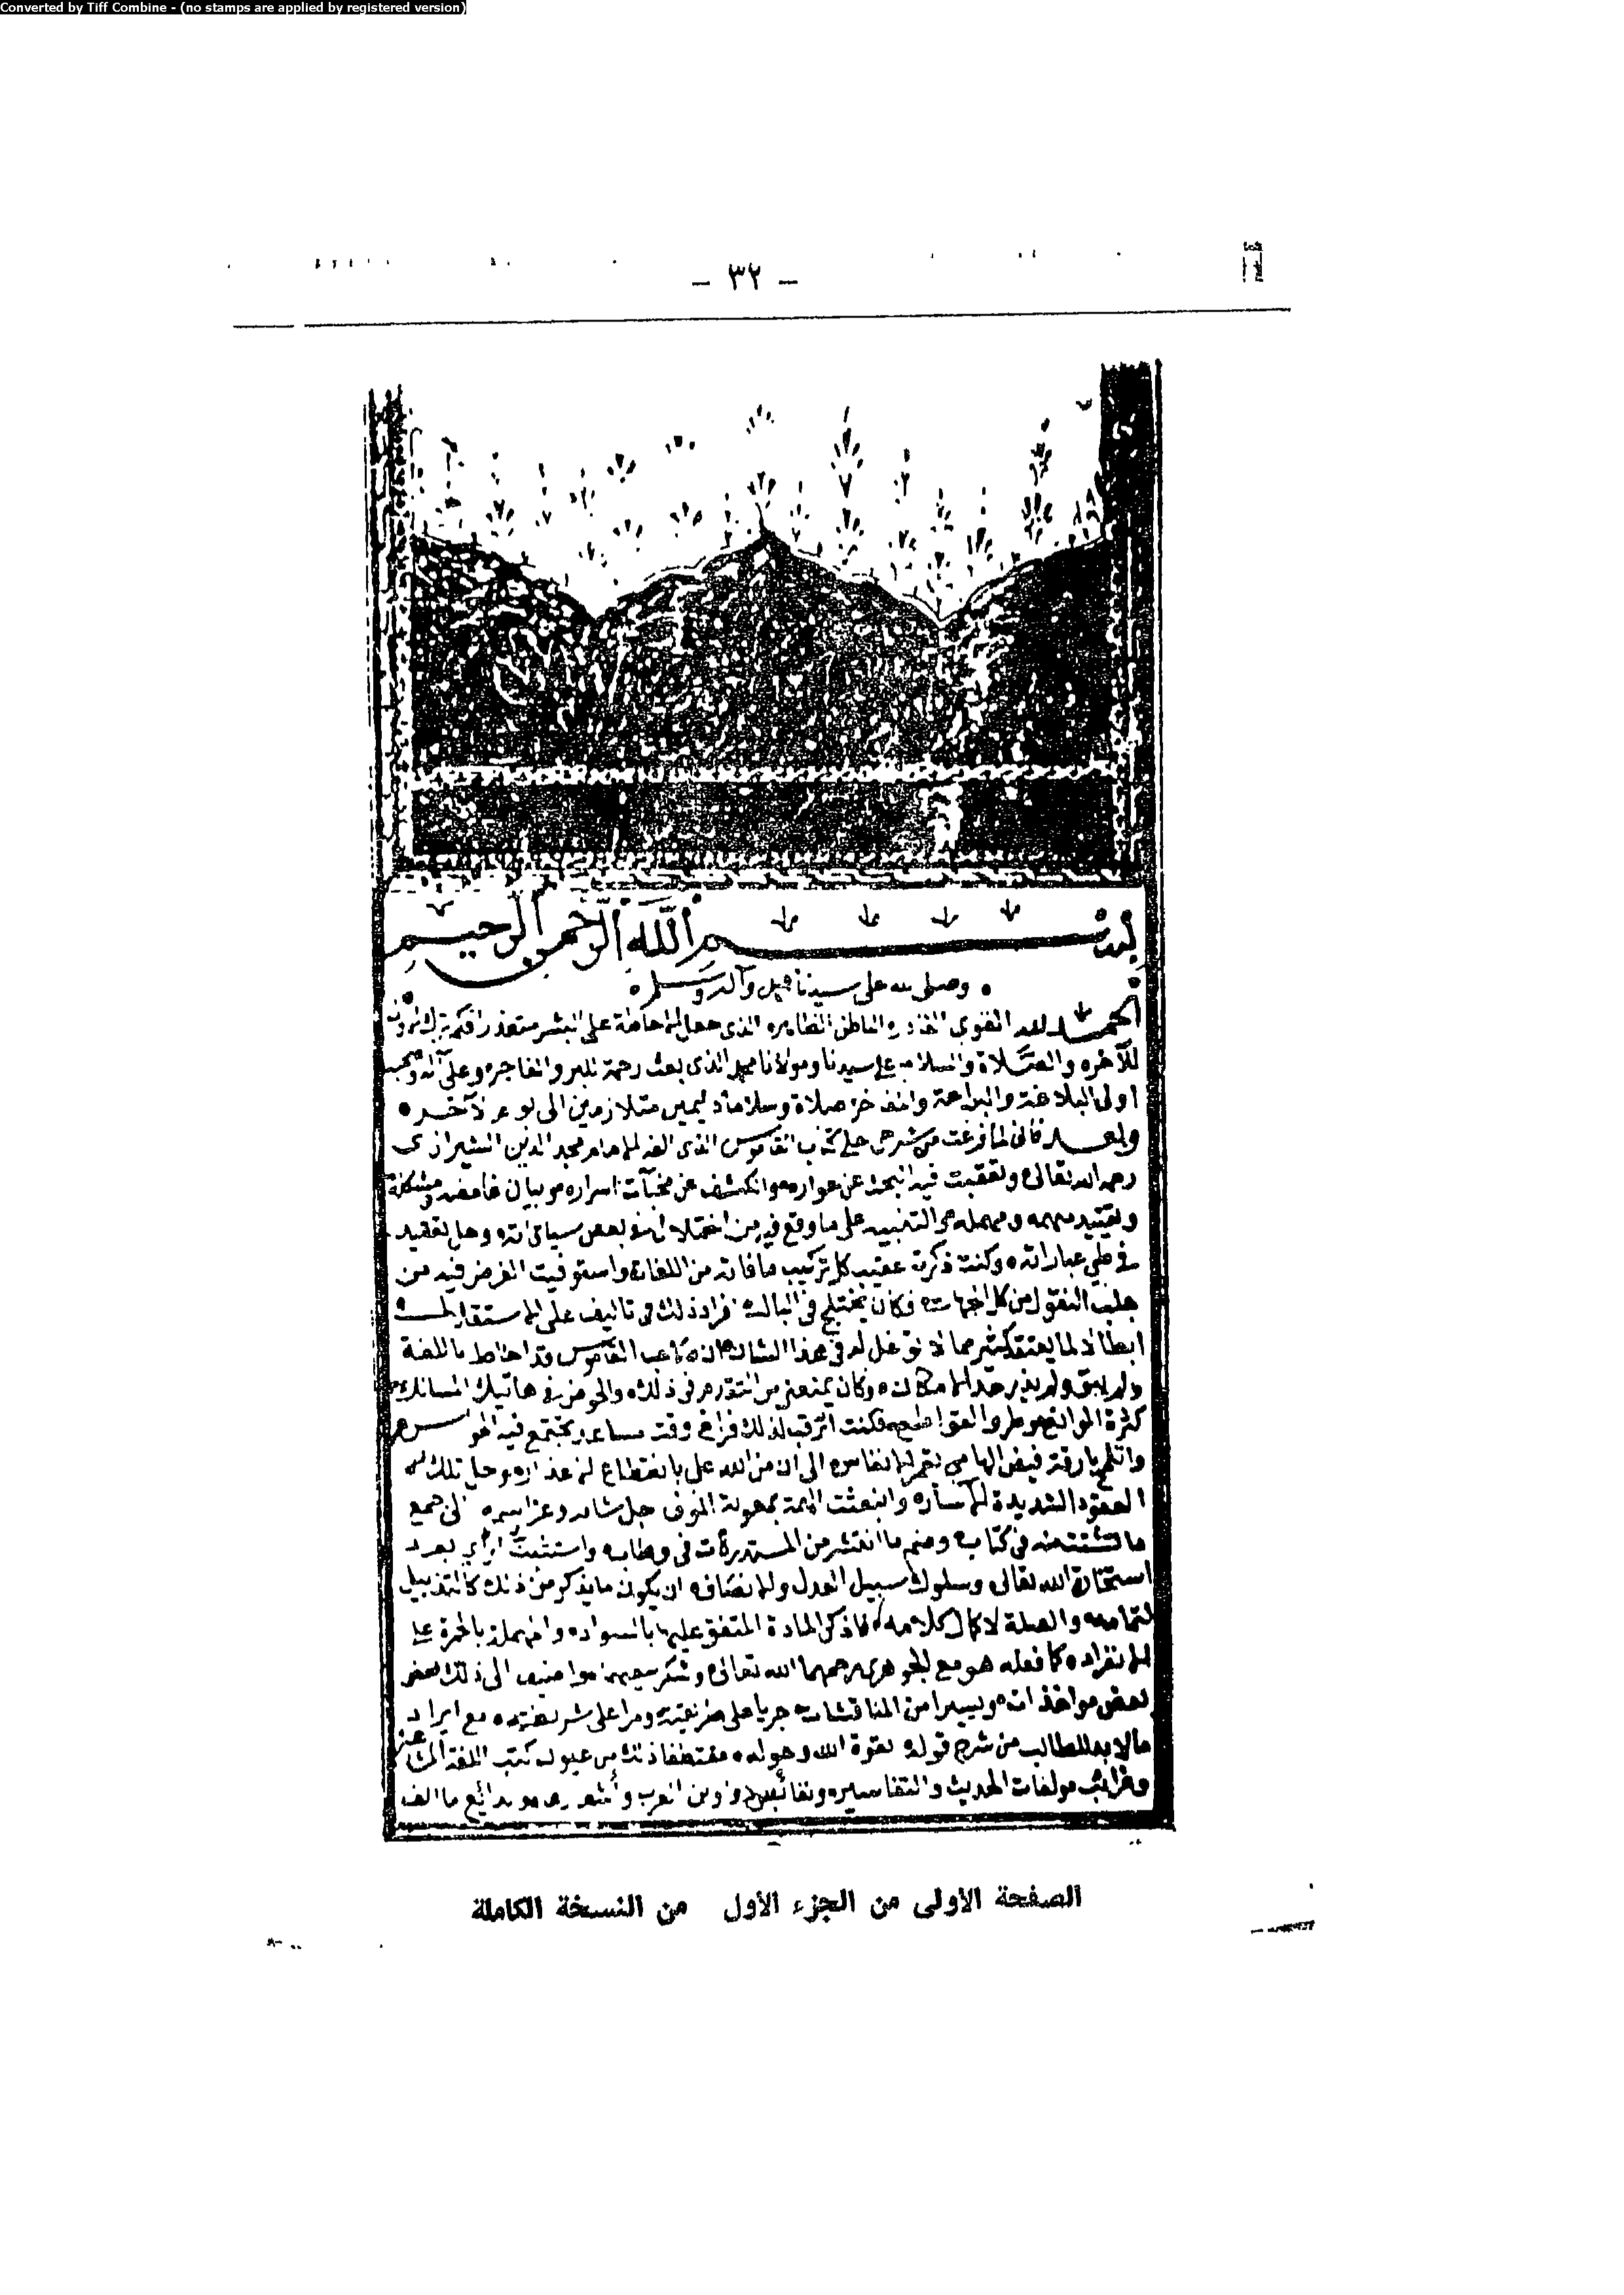 Converted by Tiff Combine - (no stamps are applied by registered version)
- ٣٢ -
بسم الله الرحمن الرحيم
وصلى الله على سيدنا محمد وآله وسلم
الحمد لله القوي القادر الباطن الظاهر الذي جعل الاحاطة على البشر متعذرا فكم ترك الاول
للآخر والصلاة والسلام على سيدنا ومولانا محمد الذي بعث رحمة للبر والفاجر وعلى آله وصحبه
اولى البلاغة والبراعة والمفاخر صلاة وسلاما دائمين متلازمين الى اليوم الآخر
وبعد فانى لما فرغت من شرحى على كتاب القاموس الذى الفه الامام مجد الدين الشيرازى
رحمه الله تعالى وتعقبت فيه البحث عن عواره والكشف عن مخبآت اسراره وبيان غامضه ومشكله
وتقييد مبهمه ومهمله والتنبيه على ما وقع فيه من اختلاف بعض سياقاته وحل تعقيد
في طي عباراته وكنت ذكرت عقيب كل تركيب ما فاته من اللغات واستوفيت الغرض فيه من
جلب النقول من كل الجهات فكان يختلج في البال افراد ذلك في تاليف على الاستقلال
ابطالا لما يعتقد كثير مما لا توغل له في هذا الشان ان صاحب القاموس قد احاط باللغة
ولم يبق ولم يذر حد الامكان وكان يمنعني من التقدم في ذلك والخوض في هاتيك المسالك
كثرة الموانع والعوائق فكنت اترقب لذلك فراغ وقت مساعد تجتمع فيه الحواس
الى ان من الله على بانقطاع الاعذار وحل تلك
العقود الشديدة وانبعثت الهمة بمعونة المولى جل شانه وعز اسمه الى جمع
ما تشتت منه في كتاب وضم ما انتشر من المستدركات في وطاب واستثبت الرأي بعد
استخارة الله تعالى وسلوك سبيل العدل والانصاف ان يكون ما يذكر من ذلك كالتذييل
لتمامه والصلة لاكمال كلامه فاذكر المادة المتفق عليها بالسواد والمهملة بالحمرة على
الانفراد كما فعله هو مع الجوهرى رحمهما الله تعالى وشكر سعيهما واضيف الى ذلك بعض
بعض مواخذات ويسيرا من المناقشات جريا على طريقته ومرا على شريعته مع ايراد
ما لا بد للطالب من شرح قوله بقوة الله وحوله مقتطفا ذلك من عيون كتب اللغة
وغرائب مولفات الحديث والتفاسير ودواوين العرب وبدائع ما الف
الصفحة الأولى من الجزء الأول من النسخة الكاملة